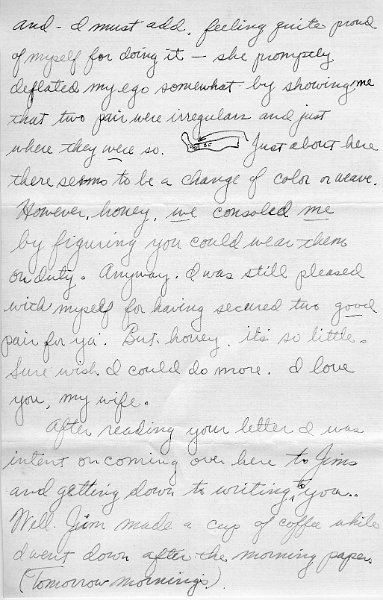 and - I must add, feeling quite proud
of myself for doing it - she promptly
deflated my ego somewhat by showing me
that two pair were irregulars and just
where they were so. Just about here
there seems to be a change of color or weave.
However, honey, we consoled me
by figuring you could wear them
on duty. Anyway, I was still pleased
with myself for having secured two good
pair for ya'. But, honey, it's so little.
Sure wish I could do more. I love
you, my wife.
After reading your letter I was
intent on coming over here to Jims
and getting down to writing to you..
Well, Jim made a cup of coffee while
I went down after the morning paper.
(Tomorrow morning's).